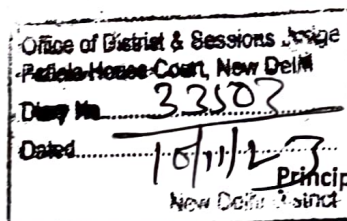 Office of District & Sessions Judge
Patiala House Court, New Delhi
Diary No. 33503
Dated 10/11/23
Princip
New Delhi District